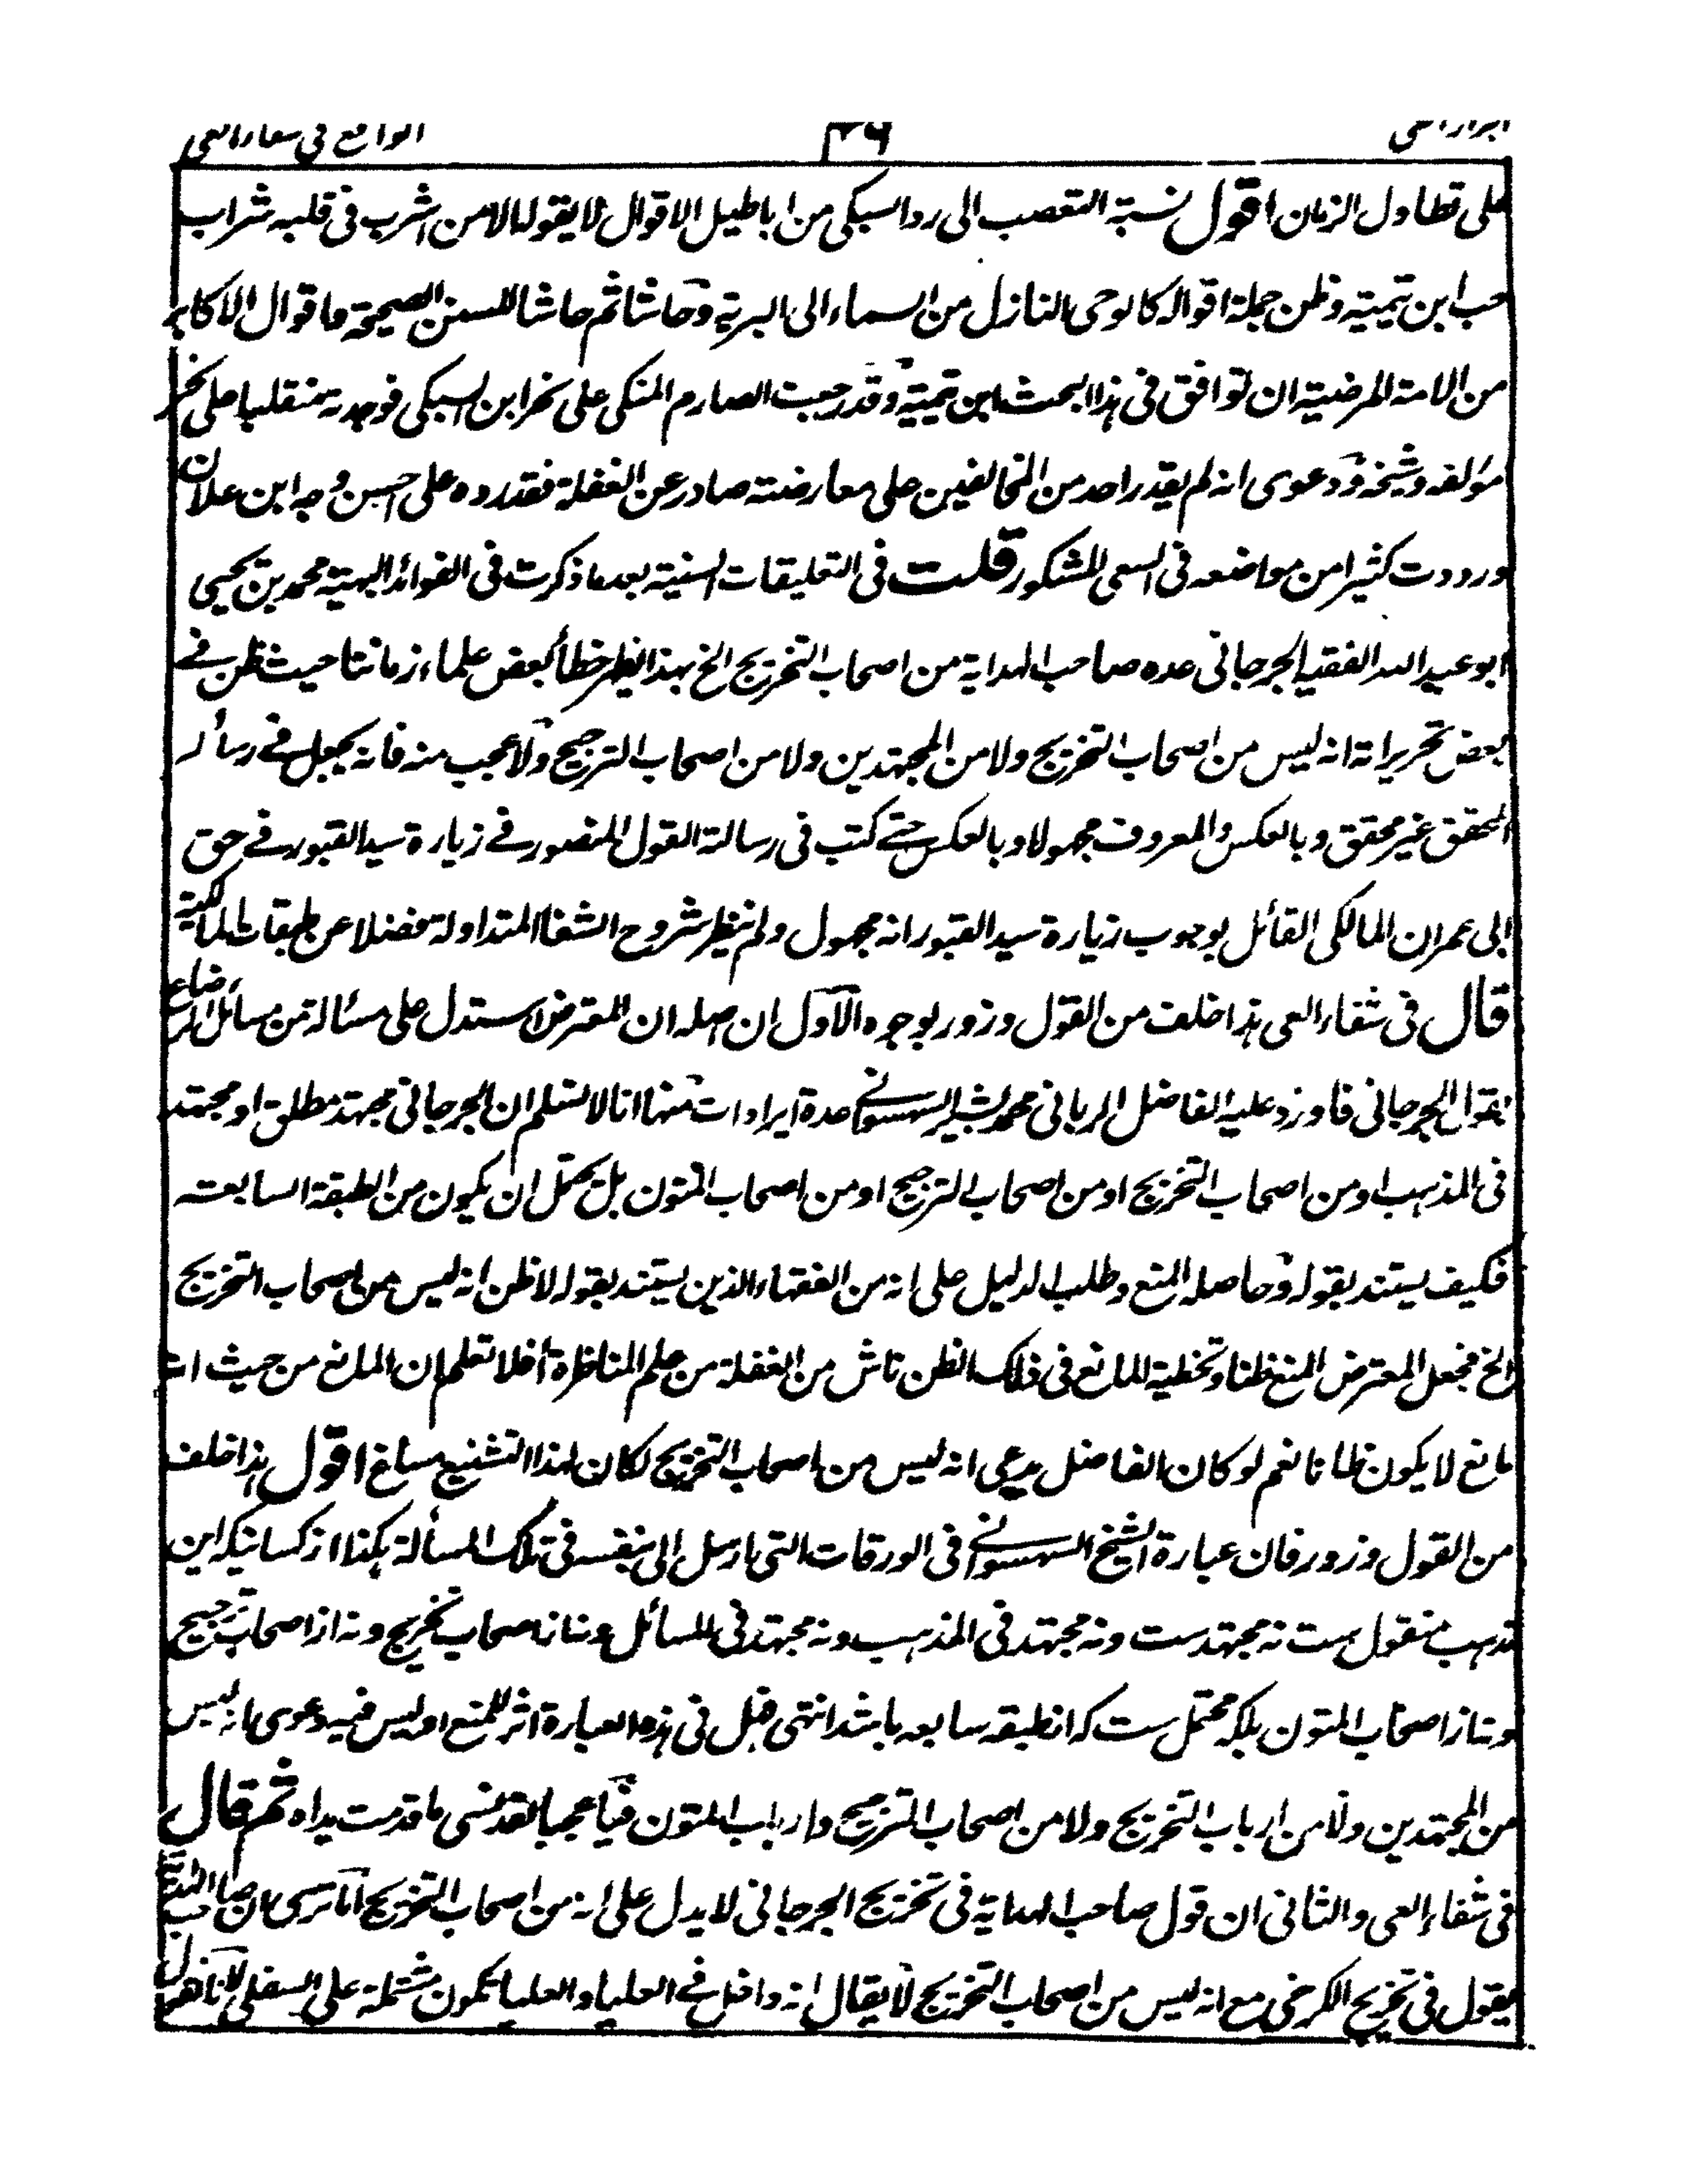 ابراز الغى ٣٦ الواقع في شفاء العي
على تطاول الزمان اقول نسبة التعصب الى رد السبكي من اباطيل الاقوال لا يقولها الا من اشرب في قلبه شراب
حب ابن تيمية وظن جملة اقواله كالوحي النازل من السماء الى البرية وحاشا ثم حاشا للسنن الصحيحة واقوال الاكابر
من الامة المرضية ان توافق في هذا البحث ابن تيمية وقد رجعت الصارم المنكي على نحر ابن السبكي فوجدته منقلبا على نحر
مؤلفه وشيخه ودعوى انه لم يقدر احد من المخالفين على معارضته صادر عن الغفلة فقد رده على احسن وجه ابن علان
ورددت كثيرا من مواضعه في السعي المشكور قلت في التعليقات السنية بعد ما ذكرت في الفوائد البهية محمد بن يحيى
ابو عبد الله الفقيه الجرجاني عده صاحب الهداية من اصحاب التخريج الخ بهذا يظهر خطأ بعض علماء زماننا حيث ظن في
بعض تحريراته انه ليس من اصحاب التخريج ولا من المجتهدين ولا من اصحاب الترجيح ولا عجب منه فانه يجعل في رسائله
المحقق غير محقق وبالعكس والمعروف مجهولا وبالعكس حتى كتب في رسالة القول المنصور في زيارة سيد القبور في حق
ابي عمران المالكي القائل بوجوب زيارة سيد القبور انه مجهول ولم ينظر شروح الشفا المتداولة فضلا عن طبقات المالكية
قال في شفاء العي هذا خلف من القول وزور بوجوه الاول ان اصله ان المعترض استدل على مسئالة من مسائل الرضاع
بقول الجرجاني فاورد عليه الفاضل الرباني محمد بشير السهسواني عدة ايرادات منها انا لا نسلم ان الجرجاني مجتهد مطلق او مجتهد
في المذهب او من اصحاب التخريج او من اصحاب الترجيح او من اصحاب المتون بل يحتمل ان يكون من الطبقة السابعة
فكيف يستند بقوله وحاصله المنع وطلب الدليل على انه من الفقهاء الذين يستند بقوله لا ظن انه ليس من اصحاب التخريج
الخ فجعل المعترض المنع ظنا وتخطية المانع في ذلك الظن ناش من الغفلة من علم المناظرة افلا تعلم ان المانع من حيث انه
مانع لا يكون ظانا نعم لو كان الفاضل يدعي انه ليس من اصحاب التخريج لكان لهذا التشنيع مساغ اقول هذا خلف
من القول وزور فان عبارة الشيخ السهسواني في الورقات التي ارسل الي بنفسه في تلك المسألة هكذا از كسانيكه اين
مذهب منقول ست نه مجتهدست ونه مجتهد في المذهب ونه مجتهد في المسائل ونه از اصحاب تخريج ونه از اصحاب ترجيح
ونه از اصحاب المتون بلكه محتمل ست كه از طبقه سابعه باشد انتهى فهل في هذه العبارة اثر للمنع او ليس فيه دعوى انه ليس
من المجتهدين ولا من ارباب التخريج ولا من اصحاب الترجيح وارباب المتون فيا عجبا لقد نسي ما قدمت يداه ثم قال
في شفاء العي والثاني ان قول صاحب الهداية في تخريج الجرجاني لا يدل على انه من اصحاب التخريج اما ترى ان صاحب الهداية
يقول في تخريج الكرخي مع انه ليس من اصحاب التخريج لا يقال انه داخل في العليا والعليا تكون مشتملة على السفلى لانا نقول